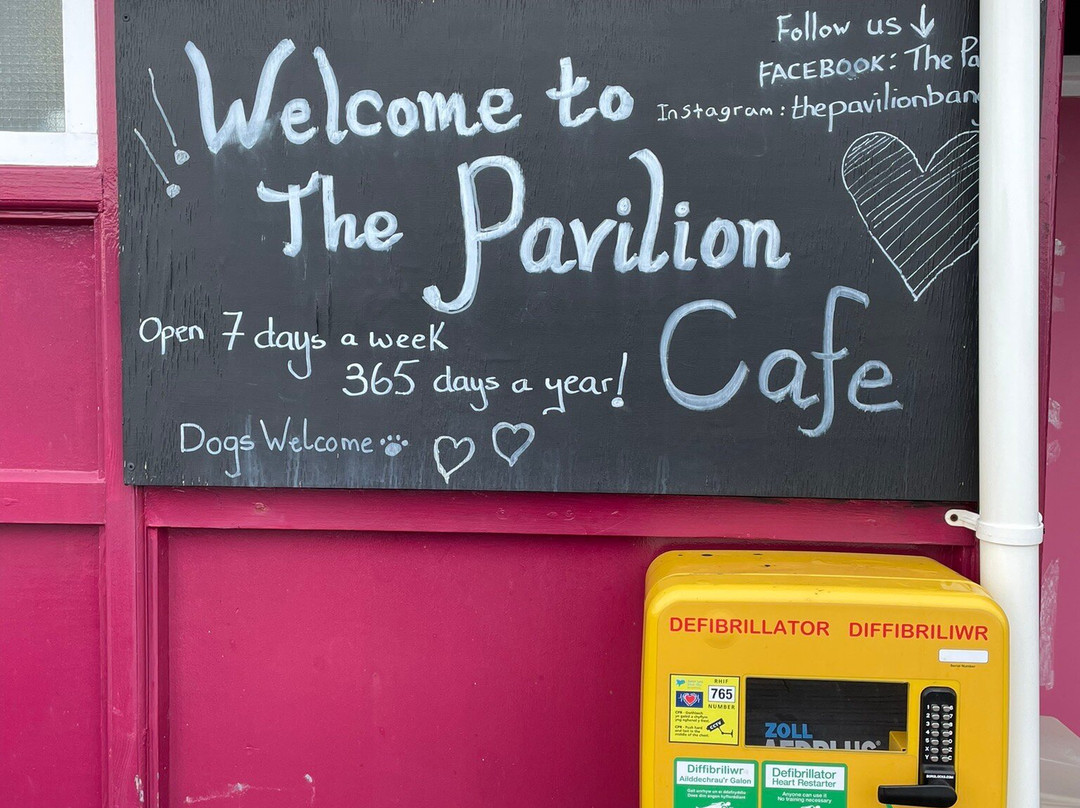 Follow us
FACEBOOK: The Pa
Instagram: thepavilionban
Welcome to
The Pavilion
Cafe
Open 7 days a week
365 days a year!
Dogs Welcome
DEFIBRILLATOR DIFFIBRILIWR
Serial Number
RHIF
765
NUMBER
ZOLL
AEDPLUS
Diffibriliwr
Ailddechrau'r Galon
Defibrillator
Heart Restarter
Anyone can use it
No training necessary